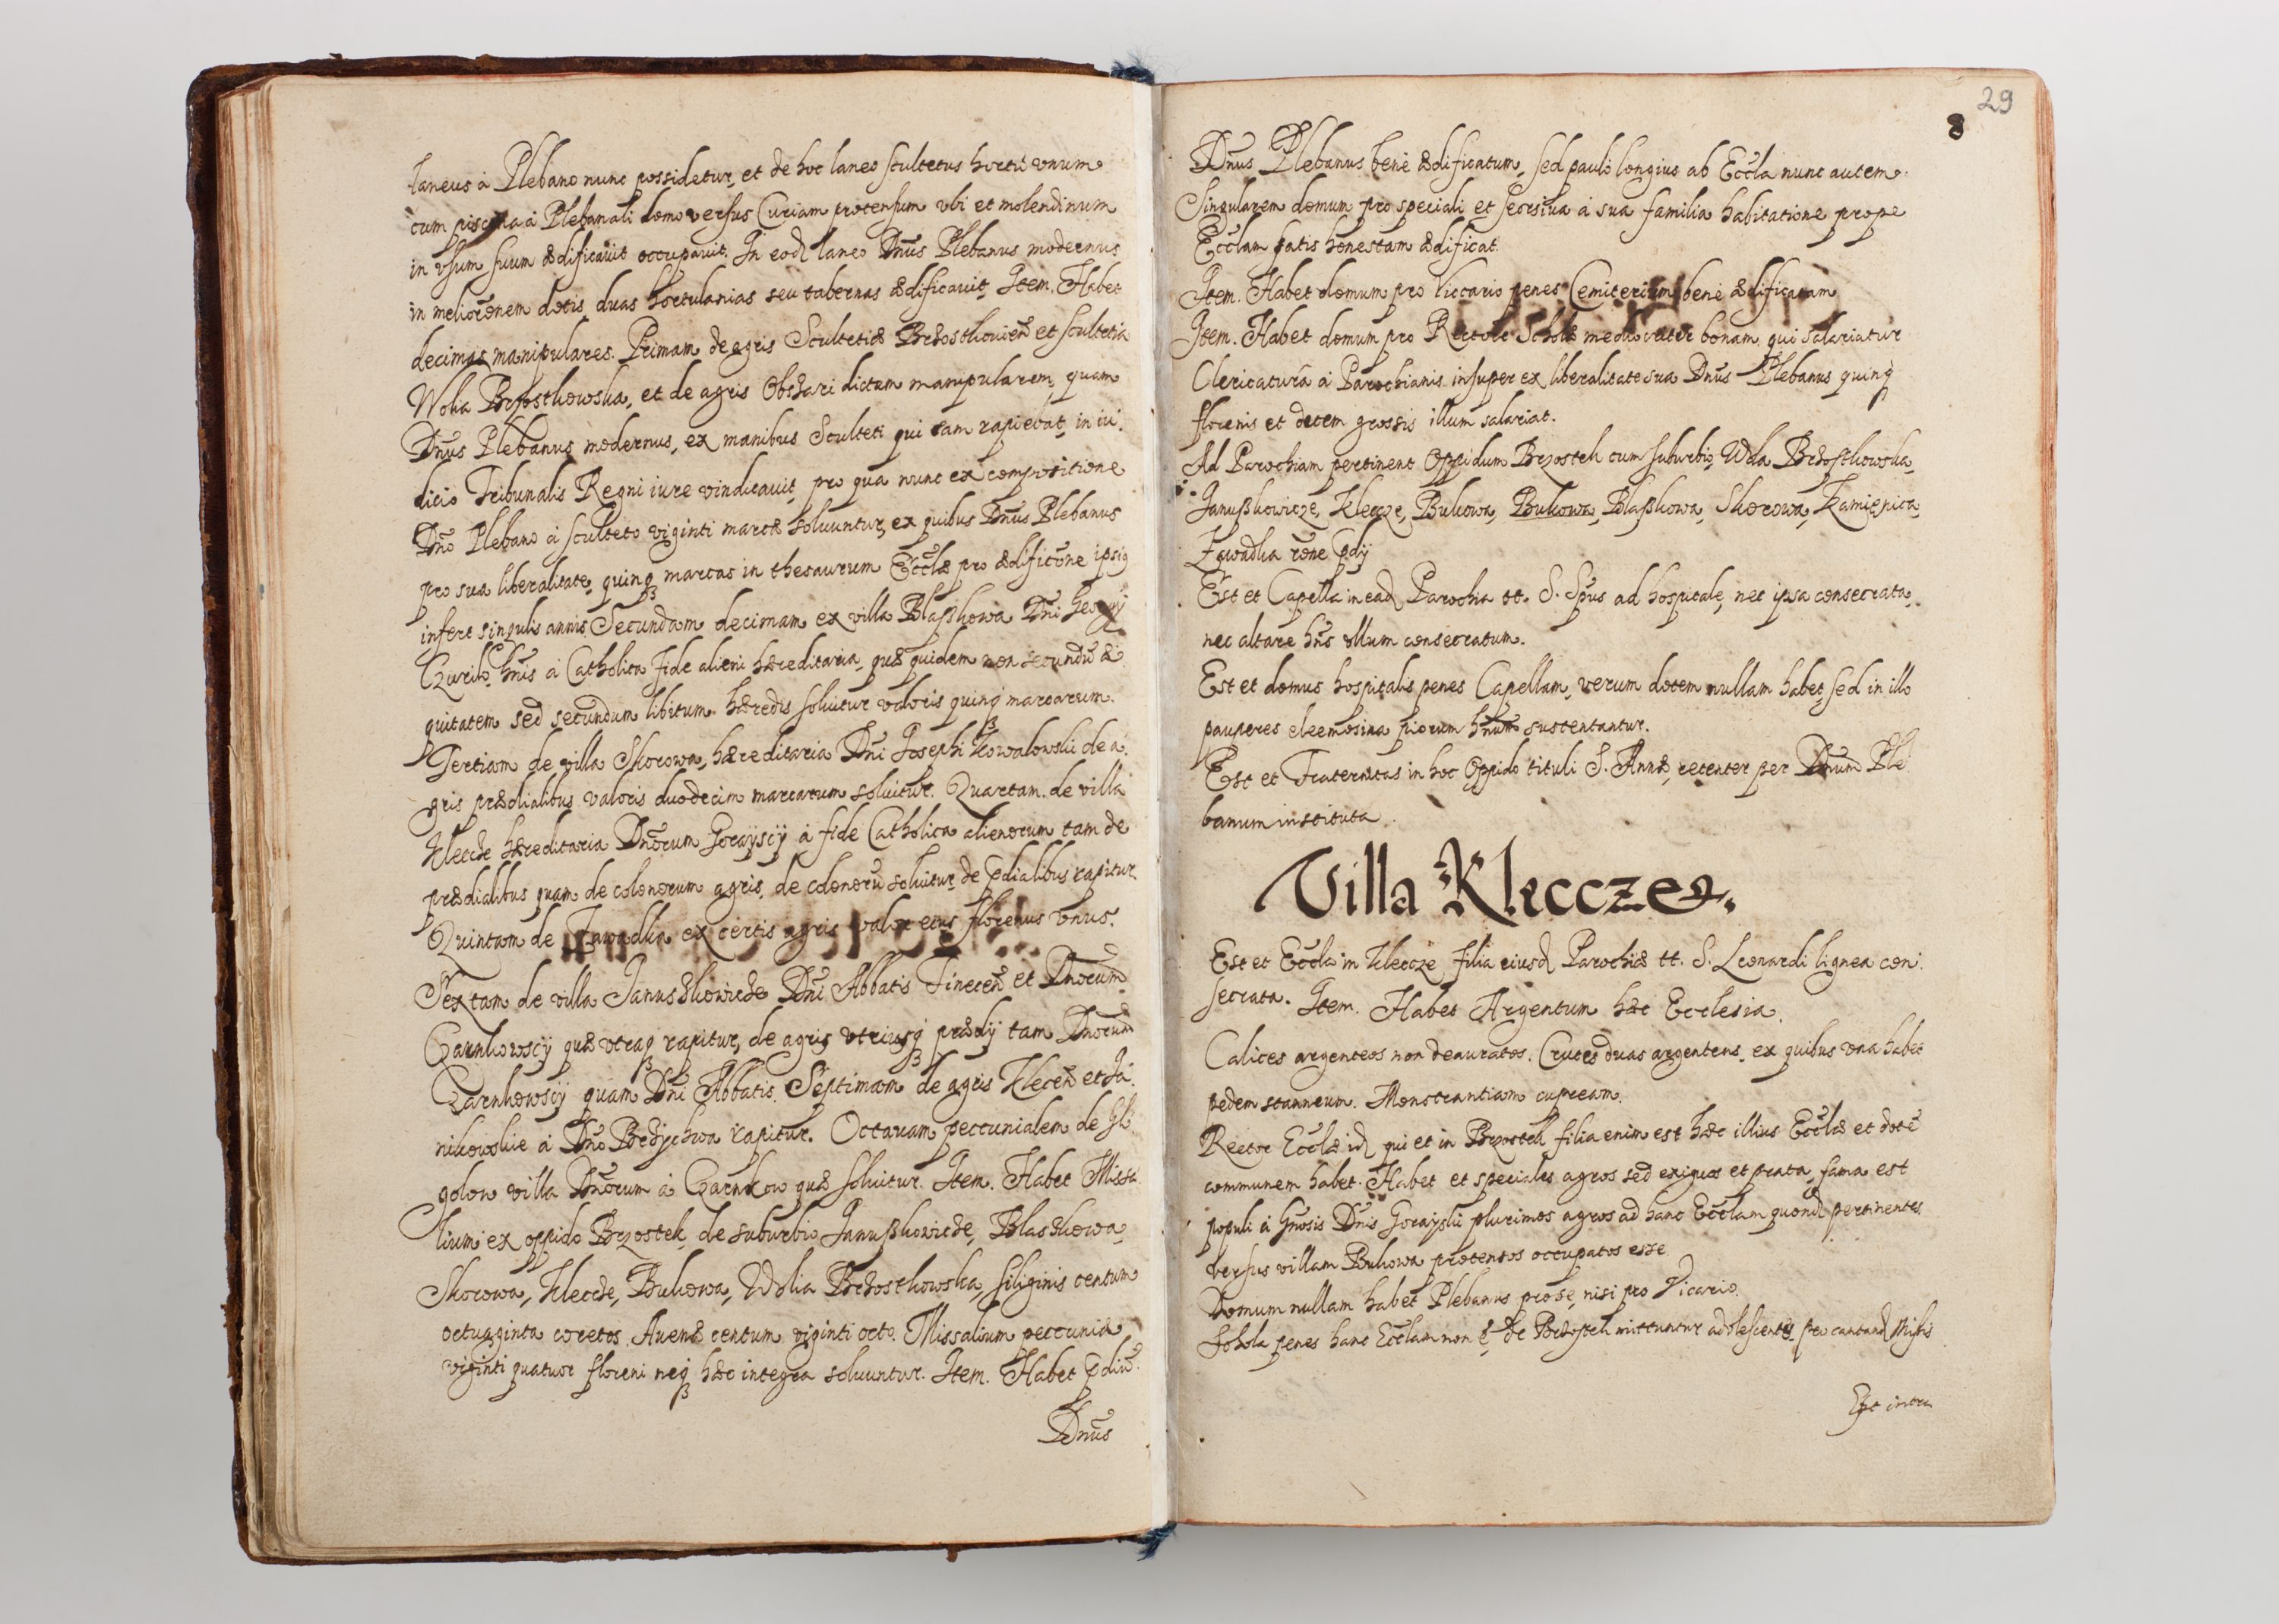 laneus à Plebano nunc possidetur, et de hoc laneo scultetus hortū vnum
cum piscina à Plebanali domo versus Curiam protensum vbi et molendinum
in vsum suum ædificauit occupauit. In eod laneo Dn̄us Plebanus modernus
in meliorōnem dotis duas hortulanias seu tabernas ædificauit. Item. Habet
decimas manipulares. Primam de agris Scultetiæ Brzostkouien̄ et scultetia
Wolia Brzostkowska, et de agris Obszari dictam manipularem, quam
Dn̄us Plebanus modernus, ex manibus Sculteti qui eam rapiebat, in iu.
dicio Tribunalis Regni iure vindicauit, pro qua nunc ex compositione
Dn̄o Plebano à sculteto viginti marcæ soluuntur, ex quibus Dn̄us Plebanus
pro sua liberalitate quinq marcas in thesaurum Eccl̄æ pro ædificōne ipsiq
infert singulis annis. Secundam decimam ex villa Blaszkowa Dn̄i
hn̄is à Catholica fide alieni hæreditaria, quæ quidem non secundū æ
quitatem sed secundum libitum hæredis soluitur valoris quinq marcarum.
Tertiam de villa Skorowa, hæreditaria Dn̄i Josephi Kowalowski de a.
gris prædialibus valoris duodecim marcarum soluitur. Quartam. de villa
Klecze hæreditaria Dn̄orum Gorayscÿ à fide Catholica alienorum tam de
prædialibus quam de colonorum agris, de colonorū soluitur de p̄dialibus rapitur.
Quintam de Zawadka ex certis agris valor eius florenus vnus.
Sextam de villa Januszkowicze Dn̄i Abbatis Tinecen̄ et Dn̄orum
Czarnkowscÿ quæ vtraq rapitur, de agris vtriusq prædij tam Dn̄orum
Czarnkowscÿ quam Dn̄i Abbatis. Septimam de agris Klecen̄ et Ja.
nikowskie à Dn̄o Brzÿchwa rapitur. Octauam peccunialem de Gl.
golow villa Dn̄orum à Czarnkow quæ soluitur. Item. Habet Missa
lium ex oppido Brzostek, de suburbio Januszkowicze, Blaszkowa,
Skorowa, Klecze, Bukowa, Wolia Brzostkowska, siliginis centum
octuaginta coretos. Auenæ centum viginti octo. Missalium peccuniæ
viginti quatuor floreni neq hæc integra soluuntur. Item. Habet p̄diū
Dn̄us
29
8
Dn̄us Plebanus benè ædificatum, sed paulò longius ab Eccl̄a nunc autem.
Singularem domum pro speciali et seorsiua à sua familia habitatione prope
Eccl̄am satis honestam ædificat.
Item. Habet domum pro Viccario penes Cemiterium benè ædificatam
Item. Habet domum pro Rectore Scholæ mediocriter bonam, qui salariatur
Clericaturā à Parochianis insuper ex liberalitate sua Dn̄us Plebanus quinq
florenis et decem grossis illum salariat.
Ad Parochiam pertinent Oppidum Brzostek cum suburbio, Wola Brzostkowska,
Januszkowicze, Klecze, Bukowa, Bukowa, Blaszkowa, Skorowa, Kamienica,
Zawadka rōne p̄dij
Est et Capella in ead Parochia tt. S. Sp̄us ad hospitale, nec ipsa consecrata,
nec altare hn̄s vllum consecratum.
Est et domus hospitalis penes Capellam, verum dotem nullam habet, sed in illo
pauperes eleemosina piorum hn̄um sustentantur.
Est et Fraternitas in hoc Oppido tituli S. Annæ, recenter per Dn̄um Ple
banum instituta.
Villa Klecze.
Est et Eccl̄a in Klecze filia eiusd Parochiæ tt. S. Leonardi lignea con.
secrata. Item. Habet Argentum hæc Ecclesia.
Calices argenteos non deauratos. Cruces duas argenteas, ex quibus vna habet
pedem stanneum. Monstrantiam cupream.
Rector Eccl̄æ id qui et in Brzostek filia enim est hæc illius Eccl̄æ et dotē
communem habet. Habet et speciales agros sed exiguos et prata, fama est
populi à Gn̄osis Dn̄is Gorayskii plurimos agros ad hanc Eccl̄am quond pertinentes
versus villam Bukowa protensos occupatos esse.
Domum nullam habet Plebanus pro se, nisi pro Vicario.
Schola penes hanc Eccl̄am non ē, de Brzostek mittuntur adolescentes pro cantand Missis.
Est intra